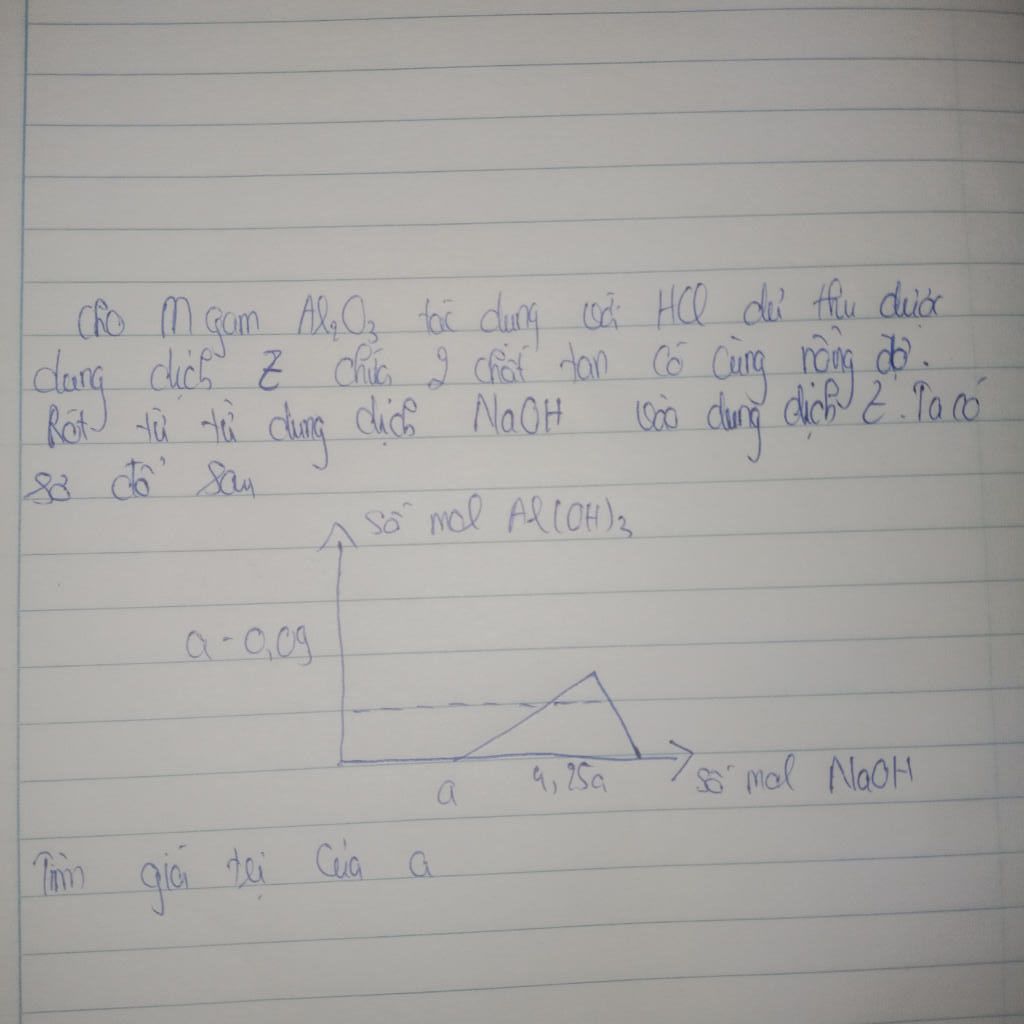 Cho m gam Al₂O₃ tác dụng với HCl dư thu được
dung dịch Z chứa 2 chất tan có cùng nồng độ.
Rót từ từ dung dịch NaOH vào dung dịch Z. Ta có
sơ đồ sau
số mol Al(OH)₃
a - 0,09
a
4,25a
số mol NaOH
Tìm giá trị của a